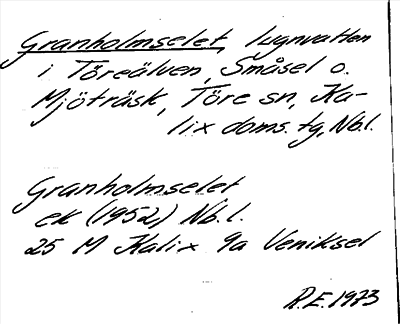 Granholmselet, lugnvatten
i Töreälven, Småsel o.
Mjöträsk, Töre sn, Ka-
lix doms. tg, Nb.l.
Granholmselet
ek (1952) Nb.l.
25 M Kalix 9a Veniksel
R.E. 1973